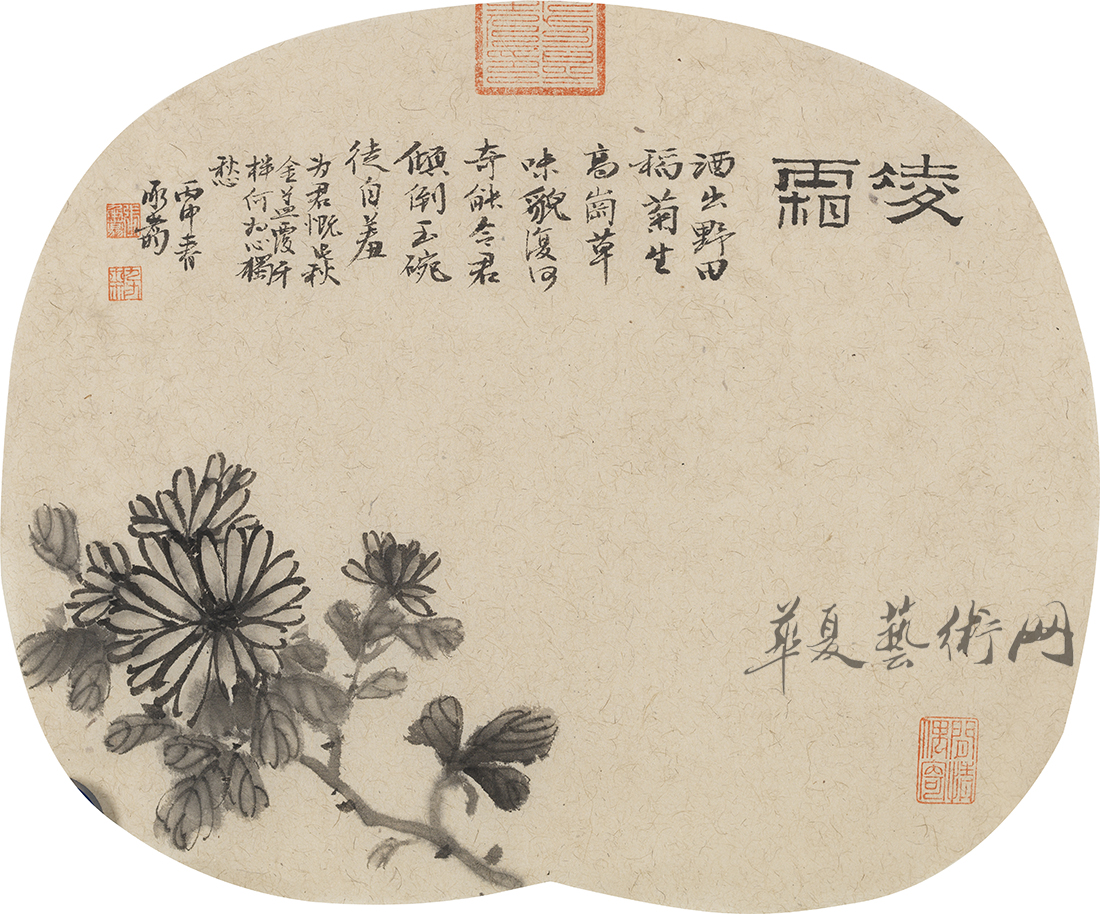 凌霜
酒出野田
稻菊生
高崗草
味貌復何
奇能令君
傾倒玉碗
徒自羞
为君慨此秋
金盖覆牙
柈何为心獨
愁
丙申春
華夏藝術网